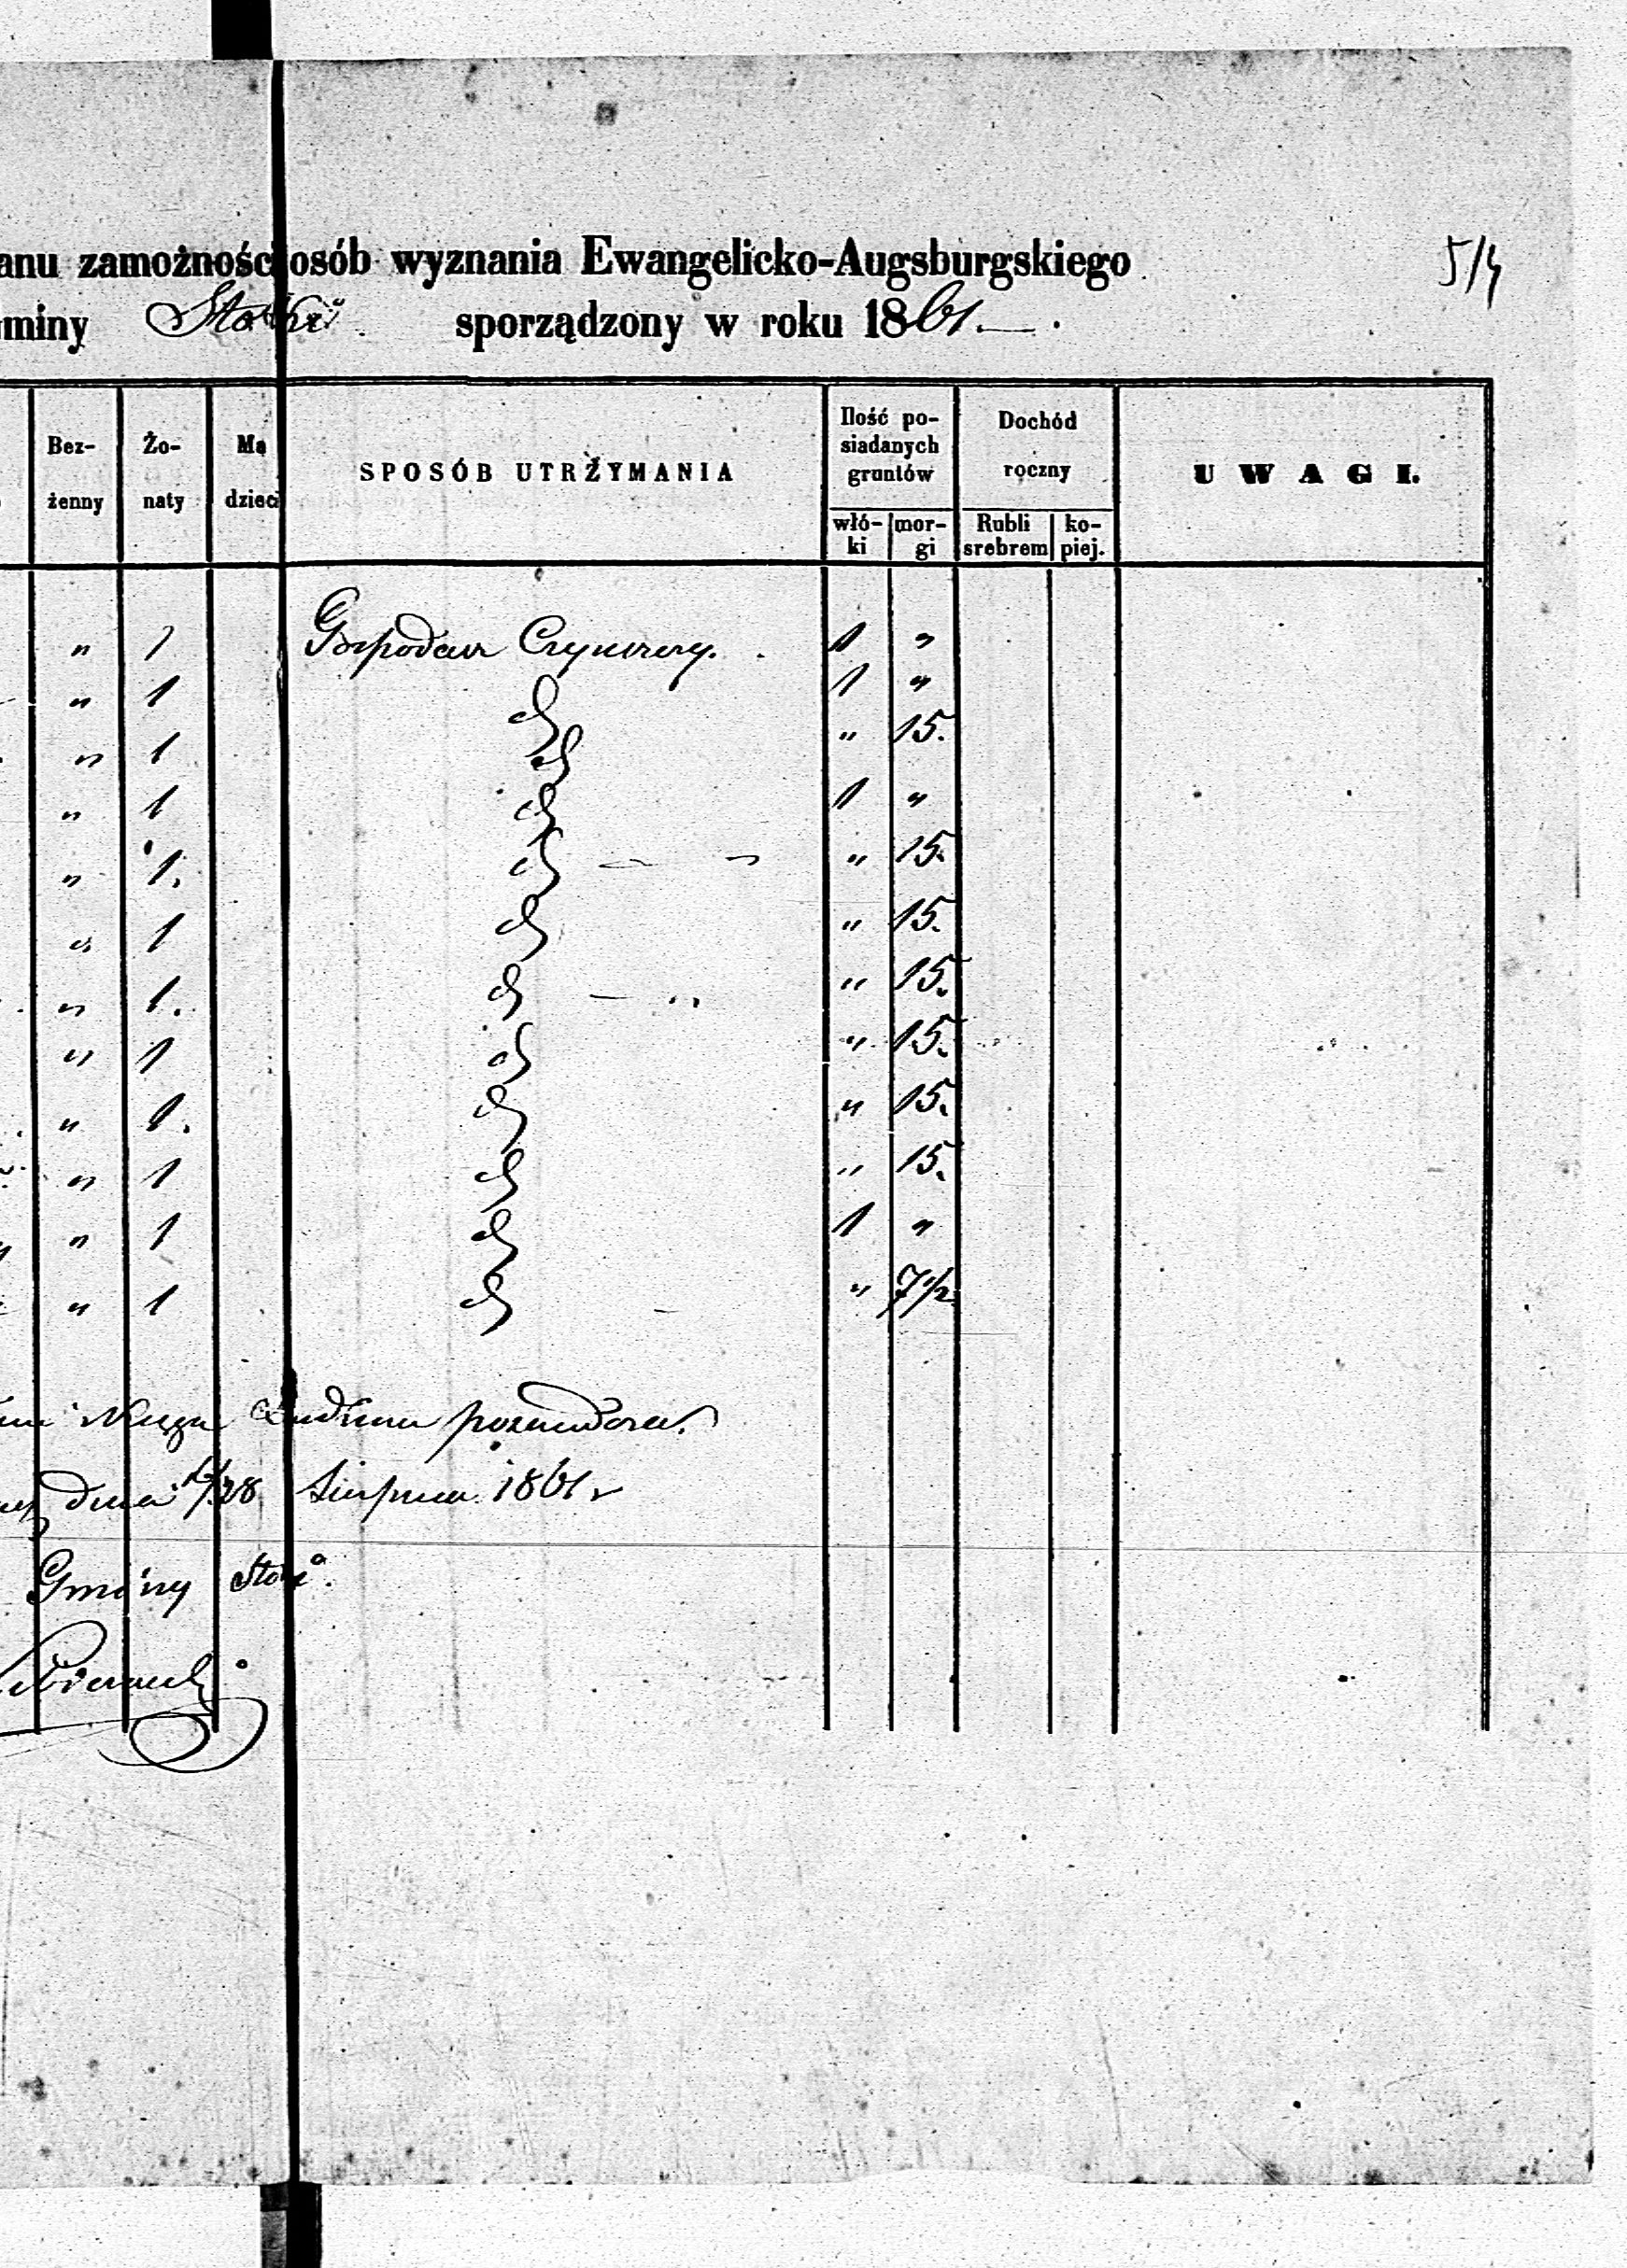 anu zamożności osób wyznania Ewangelicko-Augsburgskiego
5/4
miny Stoki sporządzony w roku 1861.
Bez-żenny Żo-naty Ma dzieci SPOSÓB UTRZYMANIA Ilość po-siadanych gruntów Dochód roczny UWAGI.
włó-ki mor-gi Rubli srebrem ko-piej.
" 1 Gospodarz Czynszowy. 1 "
" 1 d 1 "
" 1 d " 15.
" 1 d 1 "
" 1. d " 15.
" 1 d " 15.
" 1. d " 15.
" 1 d " 15.
" 1. d " 15.
" 1 d " 15.
" 1 d 1 "
" 1 d " 7 1/2
Księgą Ludności
dnia 16/28 Sierpnia 1861 r
Gminy Stoki.